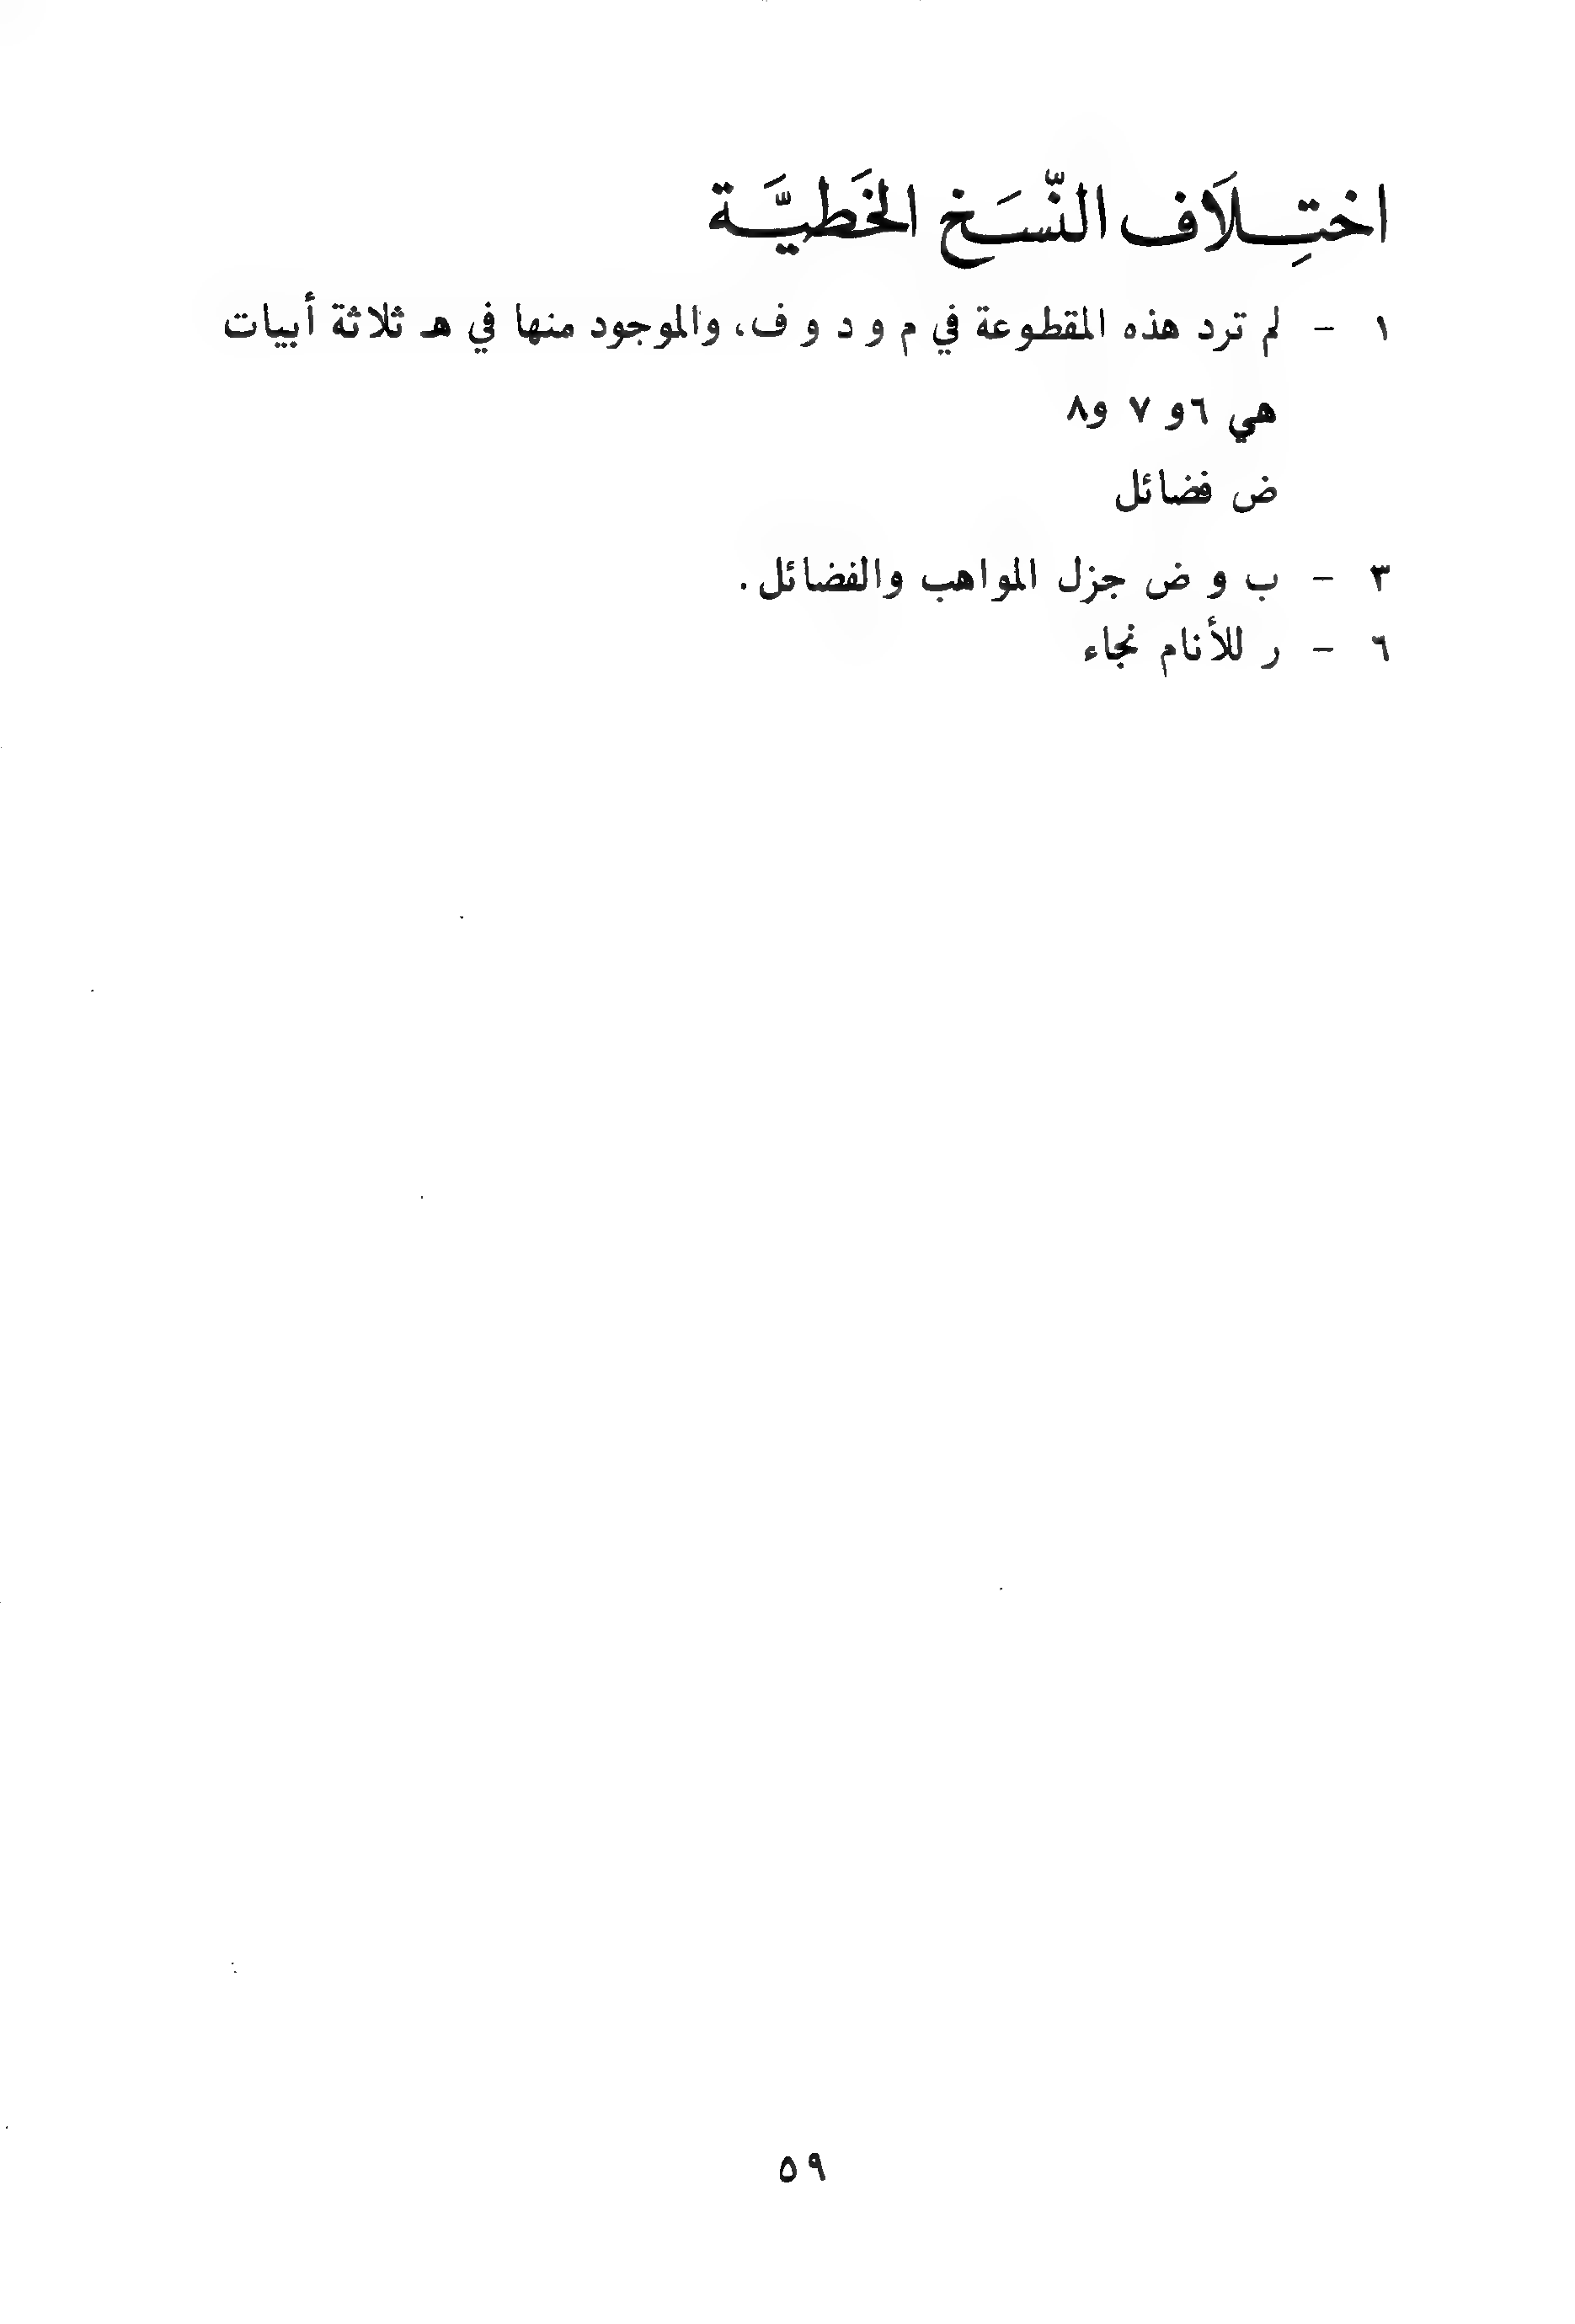 اختِلَاف النّسَخ الخَطيَّة
١ - لم ترد هذه المقطوعة في م و د و ف، والموجود منها في هـ ثلاثة أبيات
هي ٦و ٧ و٨
ض فضائل
٣ - ب و ض جزل المواهب والفضائل.
٦ - ر للأنام نجاء
٥٩